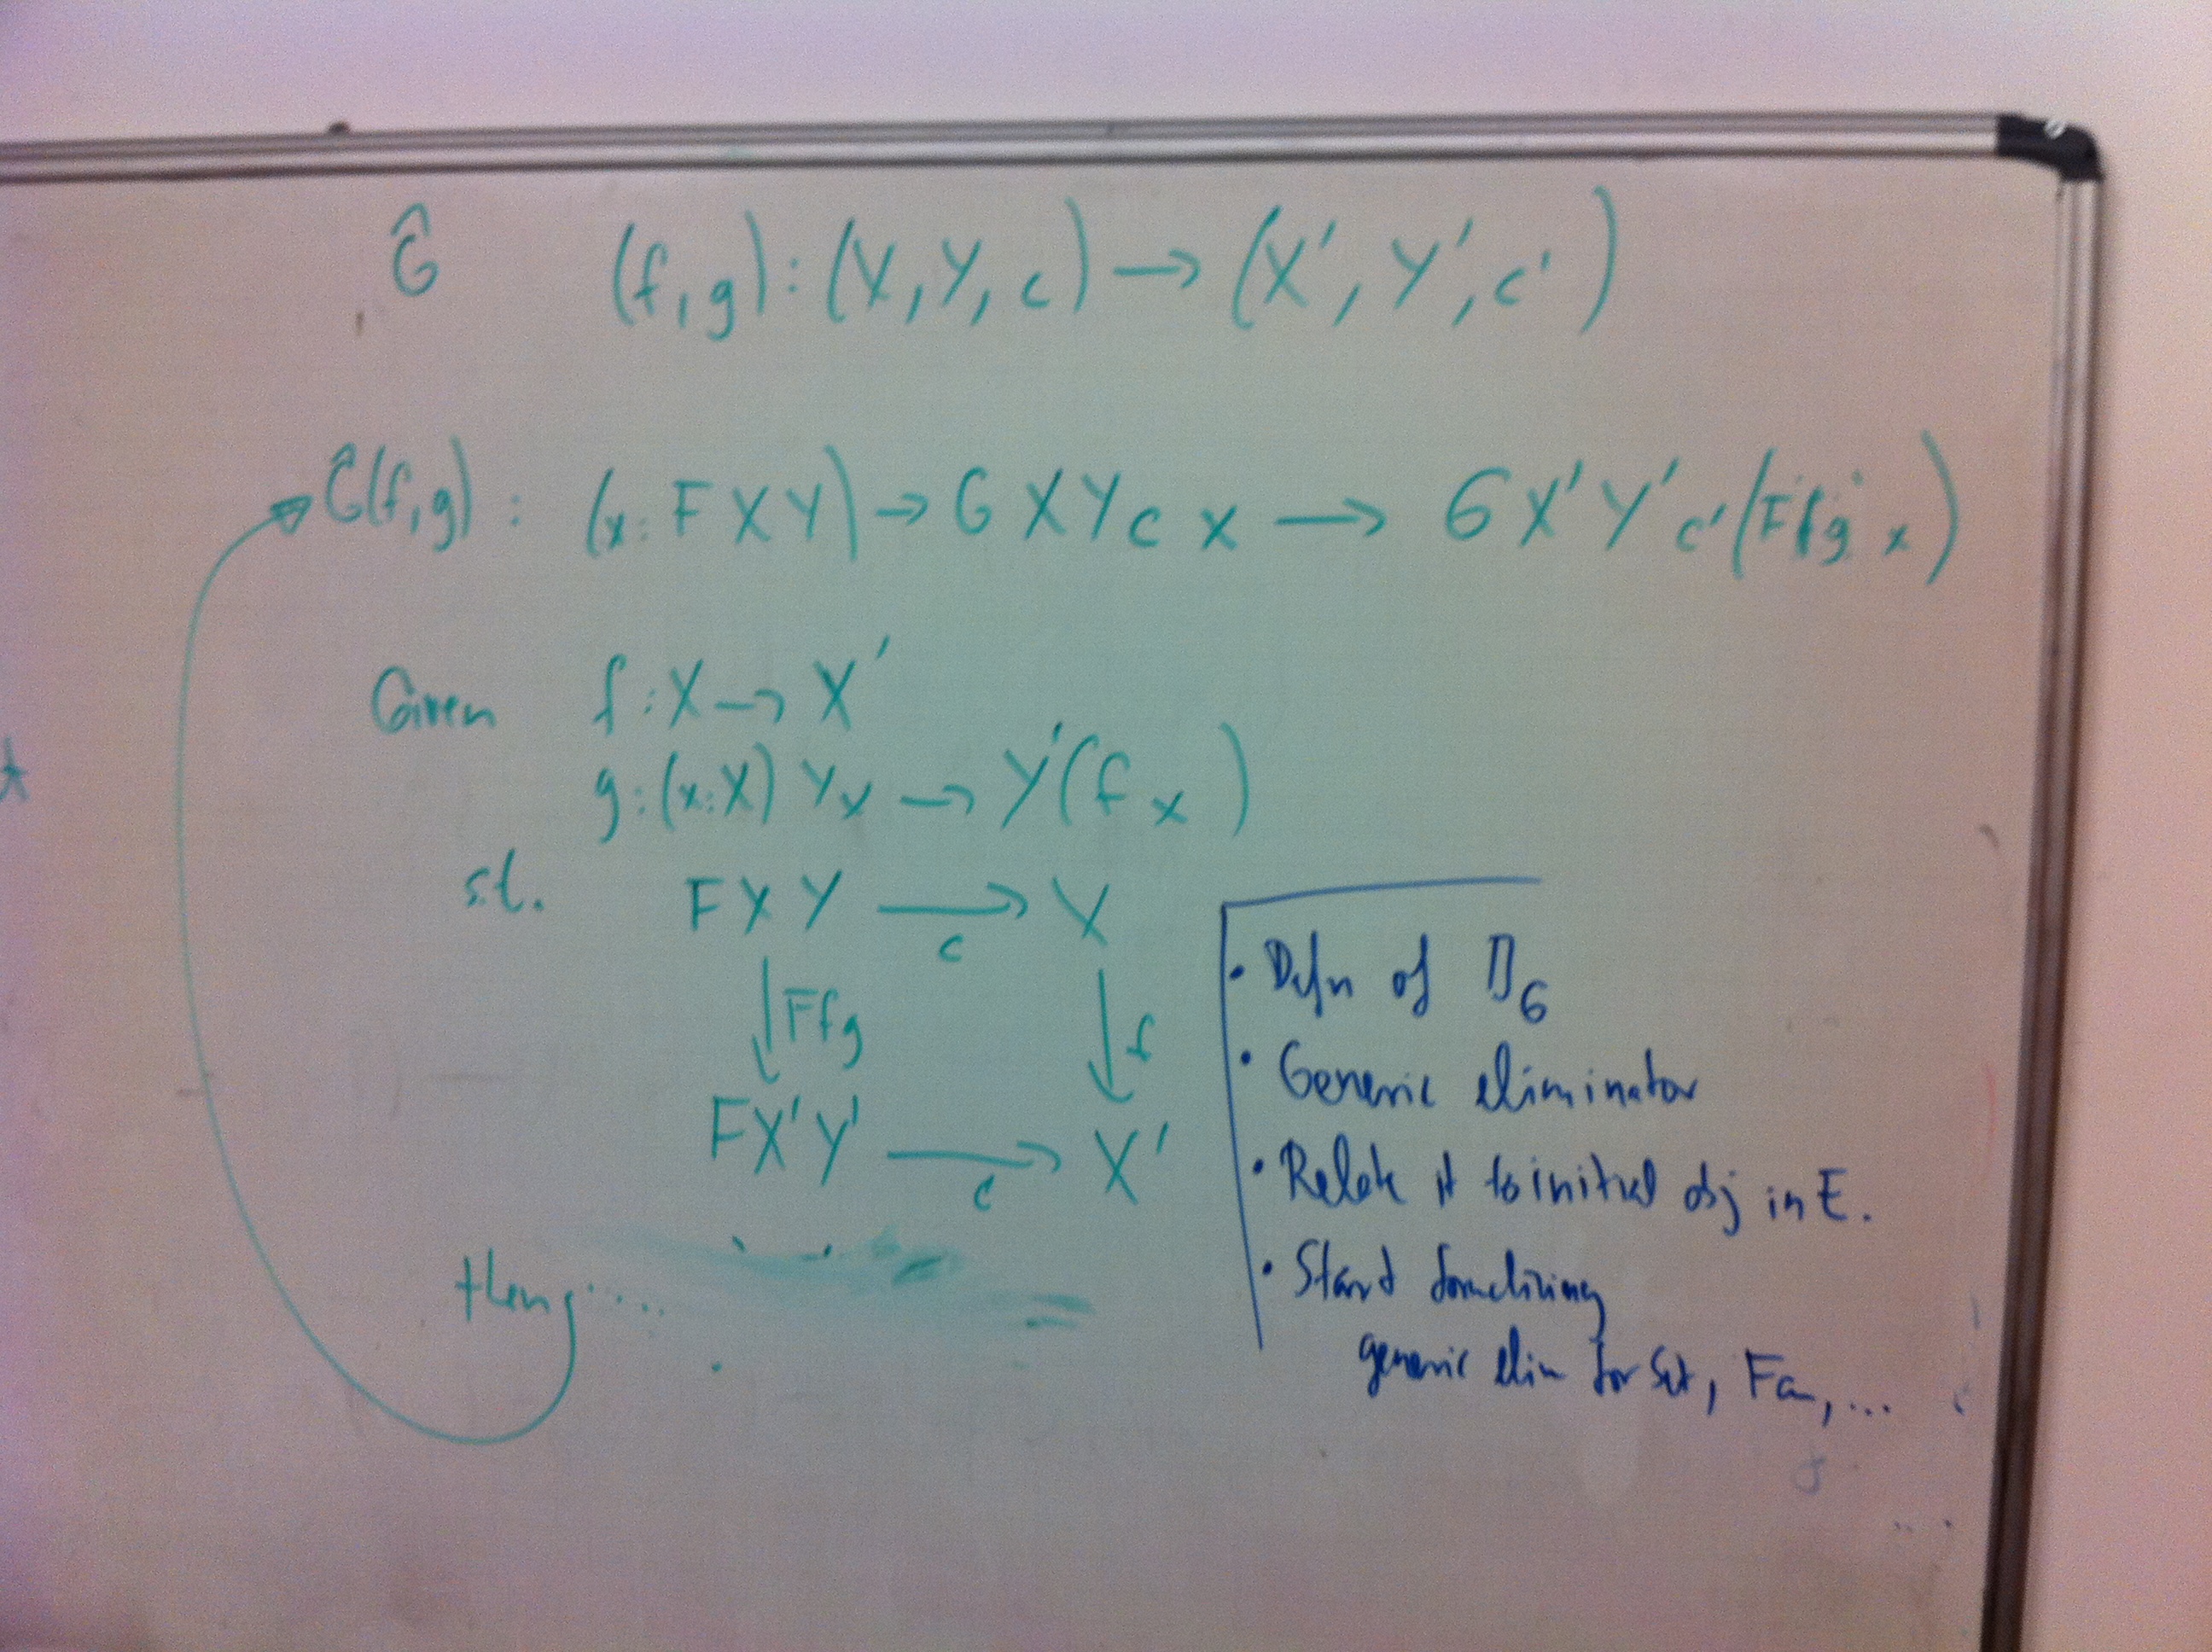 Ĝ (f,g) : (X, Y, c) → (X', Y', c')
Ĝ(f,g) : (x : F X Y) → G X Y c x → G X' Y' c' (F f g x)
Given f : X → X'
g : (x : X) Y x → Y' (f x)
s.t. F X Y → X
c
↓ F f g ↓ f
F X' Y' → X'
c'
then ....
• Defn of □G
• Generic eliminator
• Relate it to initial obj in E.
• Start formalising
generic elim for Set, Fam, ...